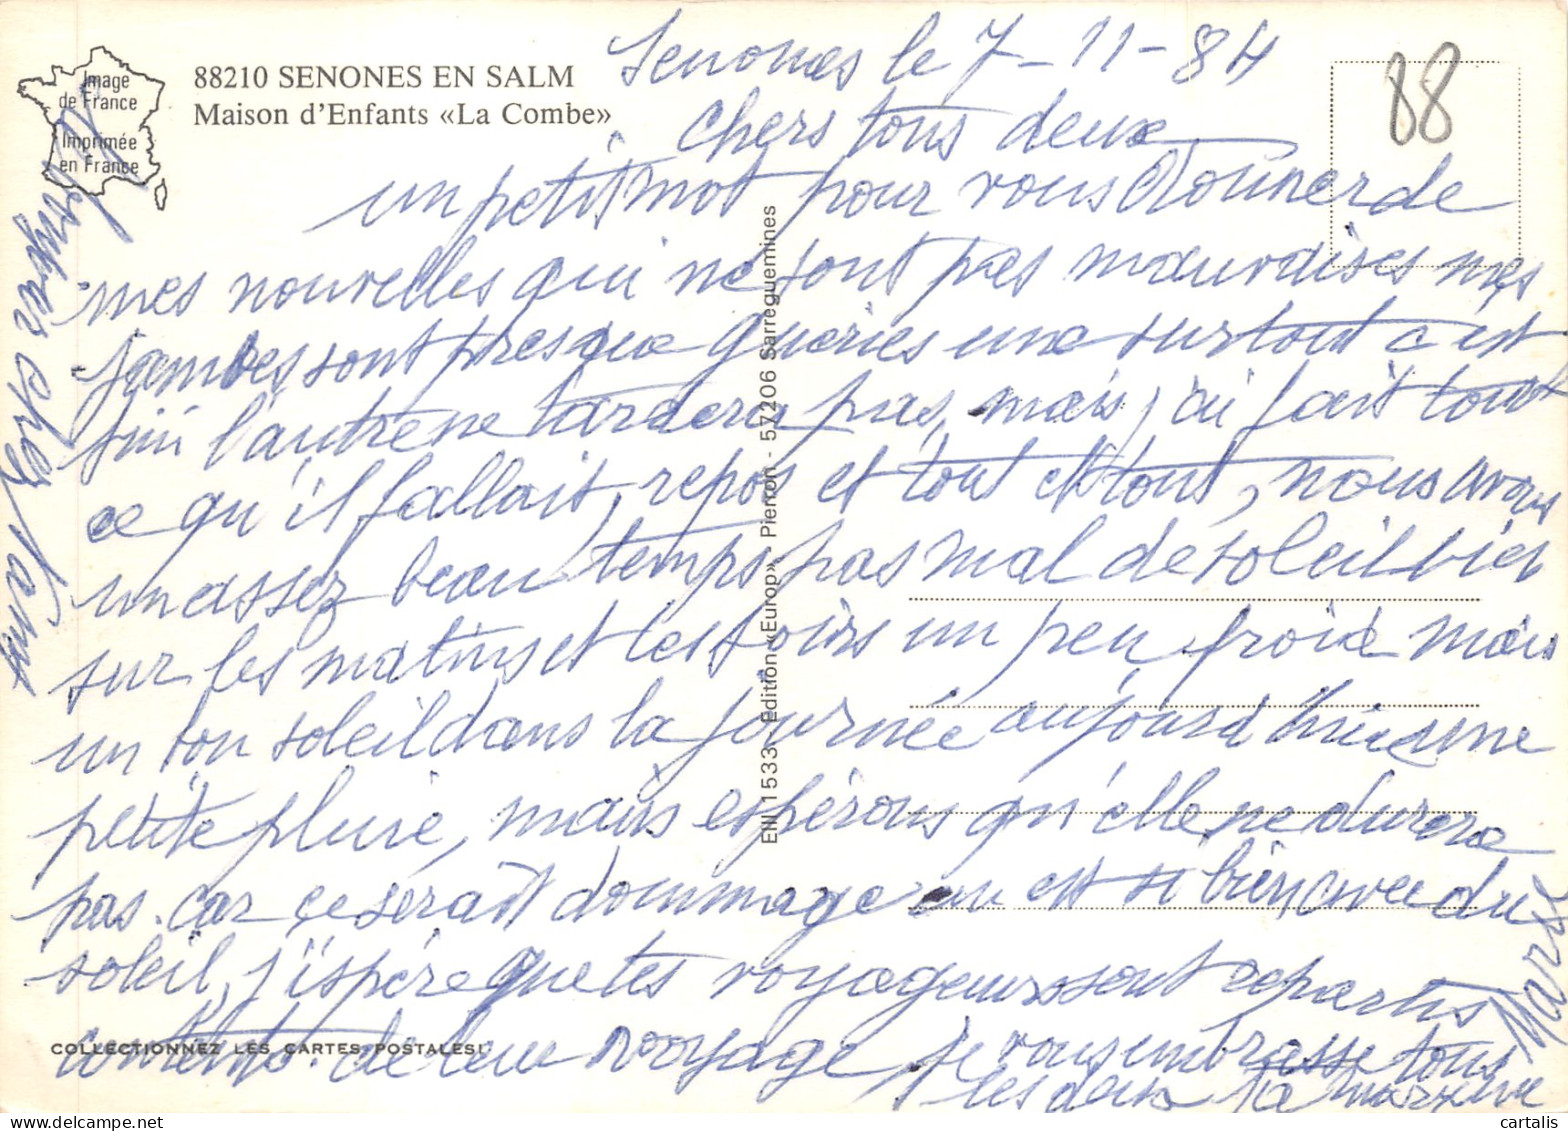 Image
de France
Imprimée
en France
88210 SENONES EN SALM
Maison d'Enfants «La Combe»
Senones le 7-11-84
88
chers tous deux
un petit mot pour vous donner de
mes nouvelles qui ne sont pas mauvaises mes
jambes sont presque gueries une surtout c'est
fini l'autre ne tardera pas, mais j'ai fait tout
ce qu'il fallait, repos et tout et tout, nous avons
un assez beau temps pas mal de soleil bien
sur les matins et les soirs un peu froid mais
un bon soleil dans la journée aujourd'hui une
petite pluie, mais espérons qu'elle ne durera
pas. car ce serait dommage on est si bien avec du
soleil, j'espère que tes voyageurs sont repartis
contents. de leur voyage, je vous embrasse tous
les deux ta marraine
COLLECTIONNEZ LES CARTES POSTALES!
EIII 1533 - Edition «Europ» Pierron - 57206 Sarreguemines
chez